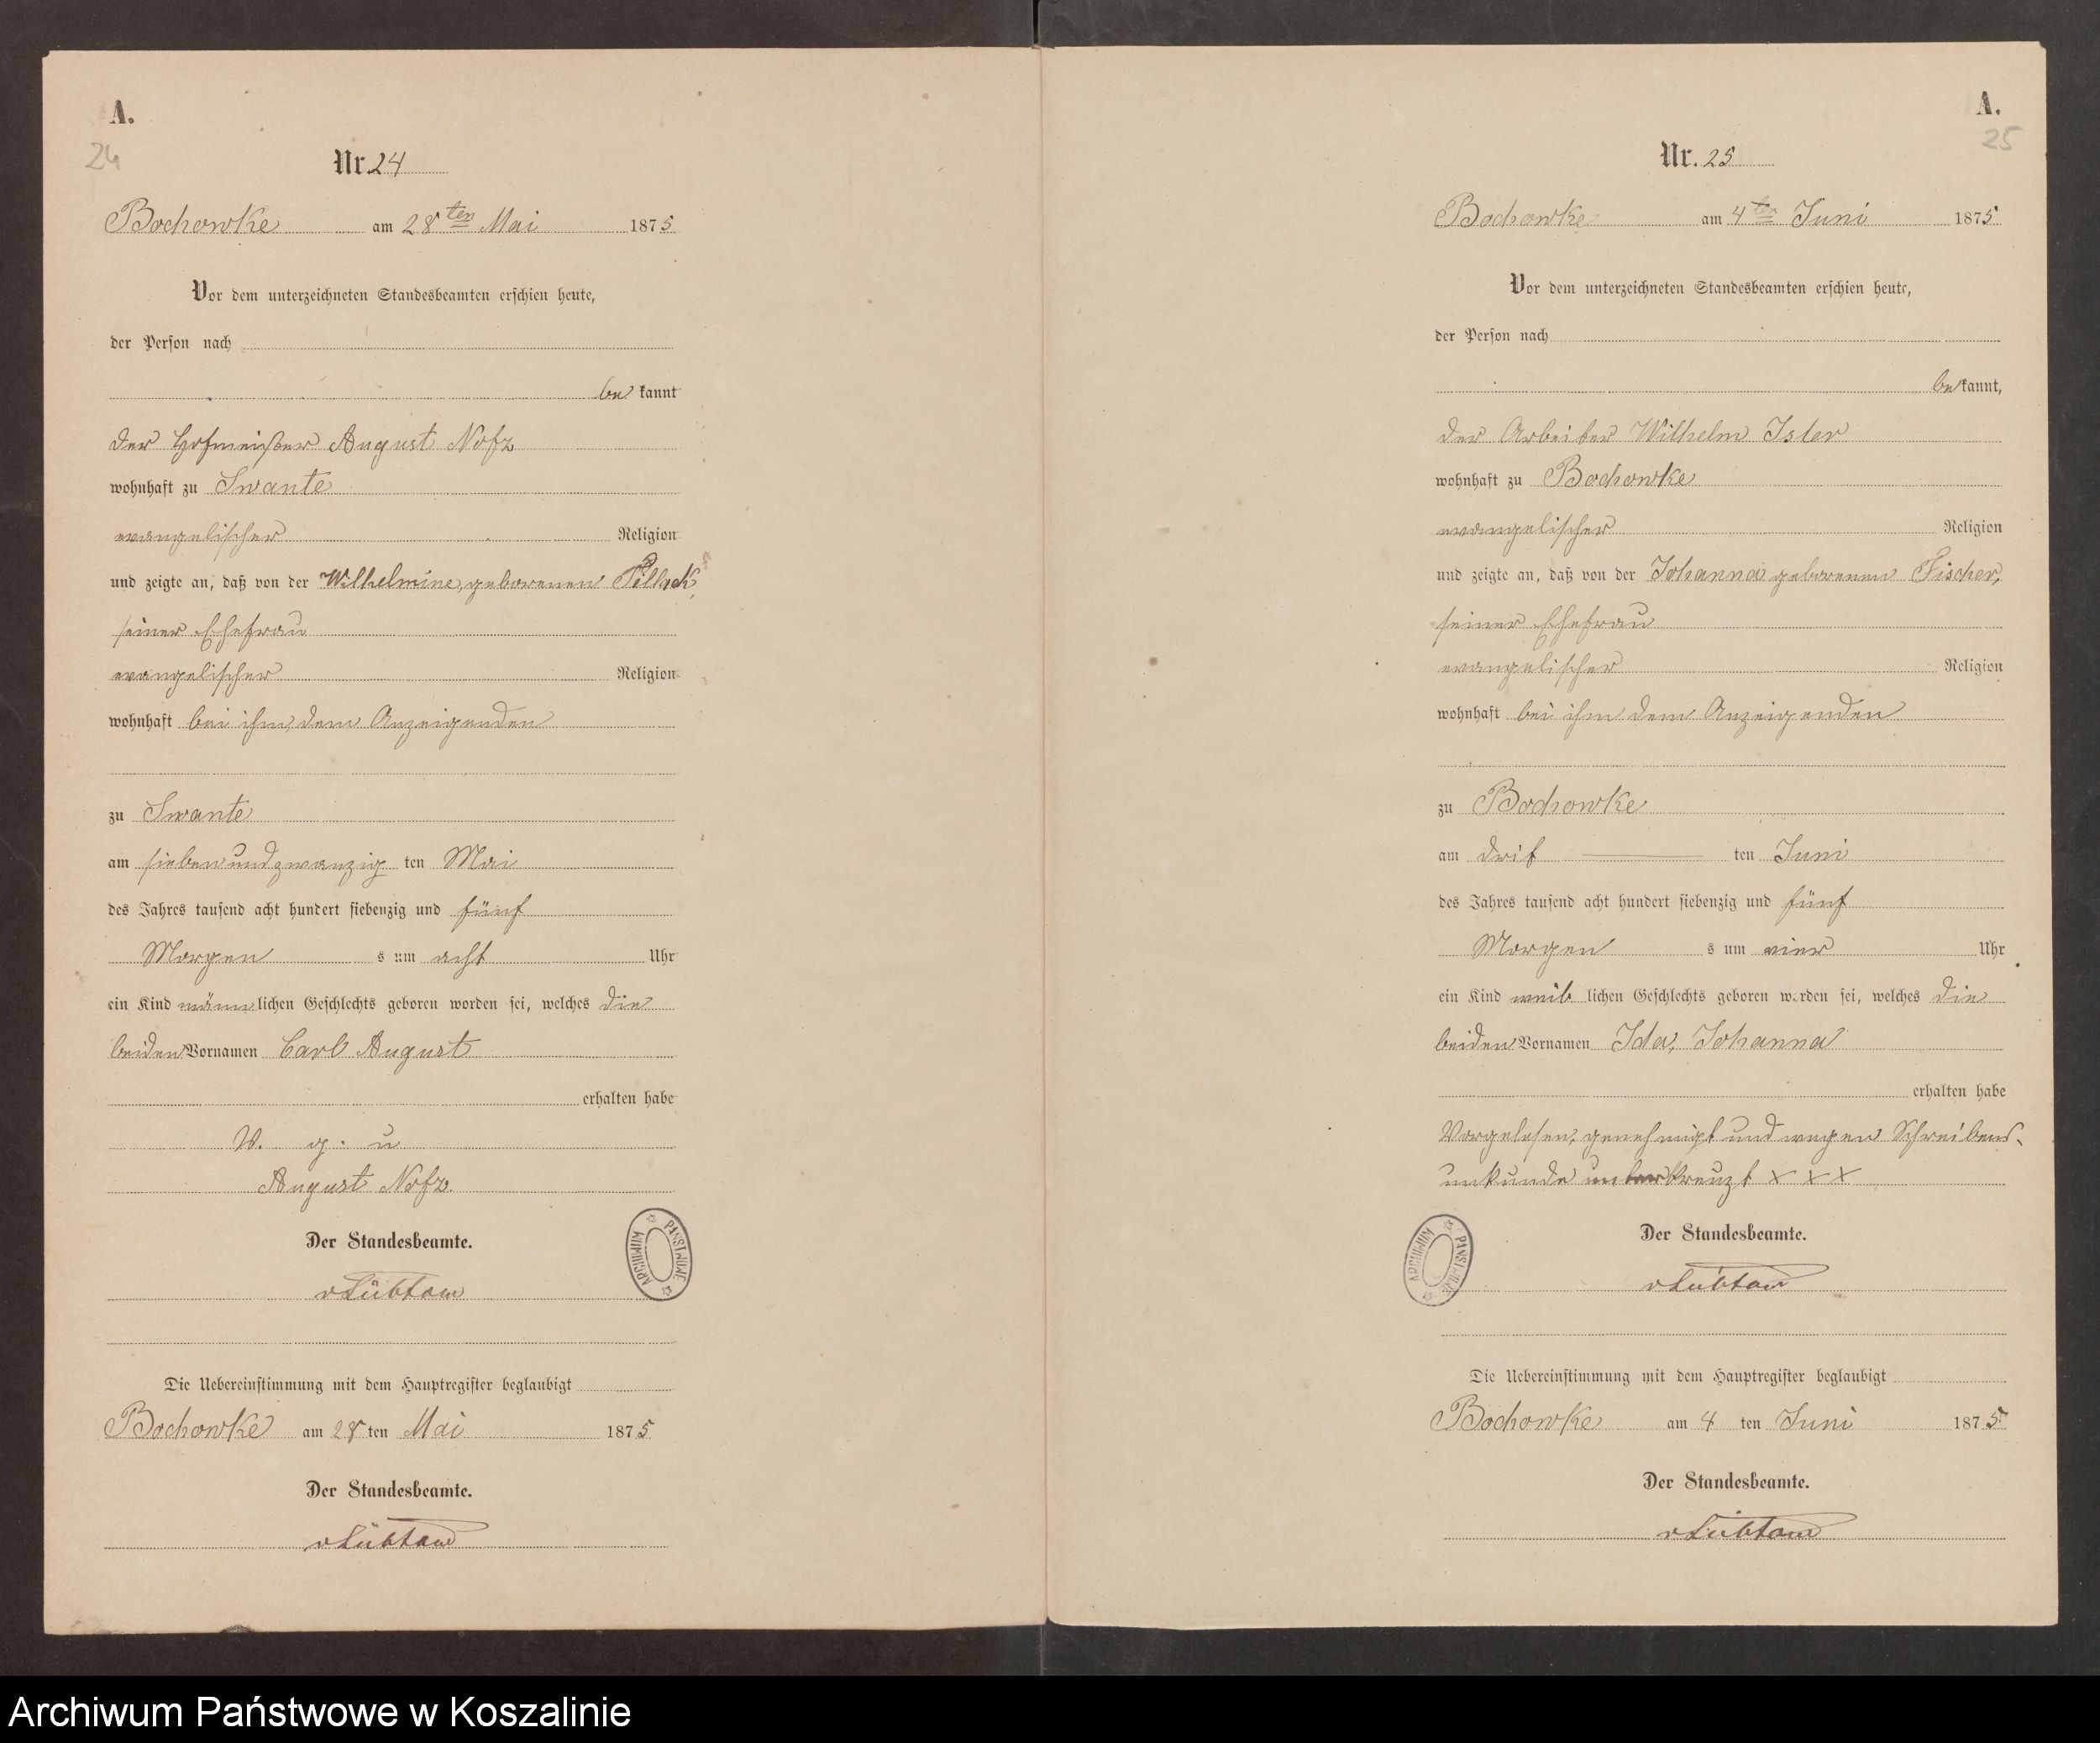 A.
24
Nr. 24
Bochowke am 28ten Mai 1875
Vor dem unterzeichneten Standesbeamten erschien heute,
der Person nach
bekannt
der Hofmeister August Nofz
wohnhaft zu Swante
evangelischer Religion
und zeigte an, daß von der Wilhelmine, geborenen Pollack,
seiner Ehefrau
evangelischer Religion
wohnhaft bei ihm, dem Anzeigenden
zu Swante
am siebenundzwanzig ten Mai
des Jahres tausend acht hundert siebenzig und fünf
Morgen s um acht Uhr
ein Kind männlichen Geschlechts geboren worden sei, welches die
beiden Vornamen Carl August
erhalten habe
V. g. u
August Nofz.
Der Standesbeamte.
vLübtow
ARCHIWUM PAŃSTWOWE
Die Uebereinstimmung mit dem Hauptregister beglaubigt
Bochowke am 28 ten Mai 1875
Der Standesbeamte.
vLübtow
A.
25
Nr. 25
Bochowke am 4ten Juni 1875
Vor dem unterzeichneten Standesbeamten erschien heute,
der Person nach
bekannt,
der Arbeiter Wilhelm Ister
wohnhaft zu Bochowke
evangelischer Religion
und zeigte an, daß von der Johanna geborenen Fischer,
seiner Ehefrau
evangelischer Religion
wohnhaft bei ihm dem Anzeigenden
zu Bochowke
am drit ten Juni
des Jahres tausend acht hundert siebenzig und fünf
Morgen s um vier Uhr
ein Kind weiblichen Geschlechts geboren worden sei, welches die
beiden Vornamen Ida, Johanna
erhalten habe
Vorgelesen, genehmigt und wegen Schreibens-
unkunde unterkreuzt x x x
Der Standesbeamte.
vLübtow
ARCHIWUM PAŃSTWOWE
Die Uebereinstimmung mit dem Hauptregister beglaubigt
Bochowke am 4 ten Juni 1875
Der Standesbeamte.
vLübtow
Archiwum Państwowe w Koszalinie